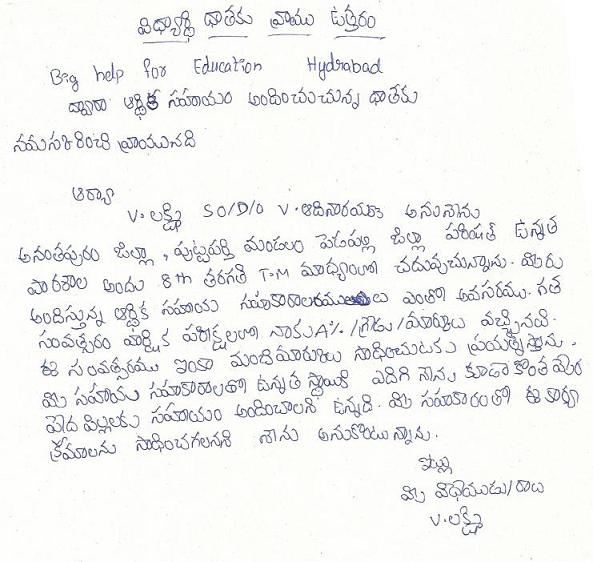 విద్యార్థి దాతకు వ్రాయు ఉత్తరం
Big help for Education Hydrabad
ద్వారా ఆర్థిక సహాయం అందించుచున్న దాతకు
నమస్కరించి వ్రాయునది
ఆర్యా
V. లక్ష్మి SO/D/O V. ఆదినారాయణ అనునేను
అనంతపురం జిల్లా, పుట్టపర్తి మండలం పెడపల్లి జిల్లా పరిషత్ ఉన్నత
పాఠశాల అందు 8th తరగతి T.M మాధ్యంలో చదువుచున్నాను. మీరు
అందిస్తున్న ఆర్థిక సహాయ సహకారాలు ఎంతో అవసరము. గత
సంవత్సరం వార్షిక పరీక్షలలో నాకు A% /గ్రేడు/మార్కులు వచ్చినవి.
ఈ సంవత్సరము ఇంకా మంచిమార్కులు సాధించుటకు ప్రయత్నిస్తాను.
మీ సహాయ సహకారాలతో ఉన్నత స్థాయికి ఎదిగి నేను కూడా కొంత మేర
పేద పిల్లలకు సహాయం అందించాలని ఉన్నది. మీ సహకారంతో ఈ కార్యా
క్రమాలను సాధించగలనని నేను అనుకొంటున్నాను.
ఇట్లు
మీ విధేయుడు/రాలు
V. లక్ష్మి